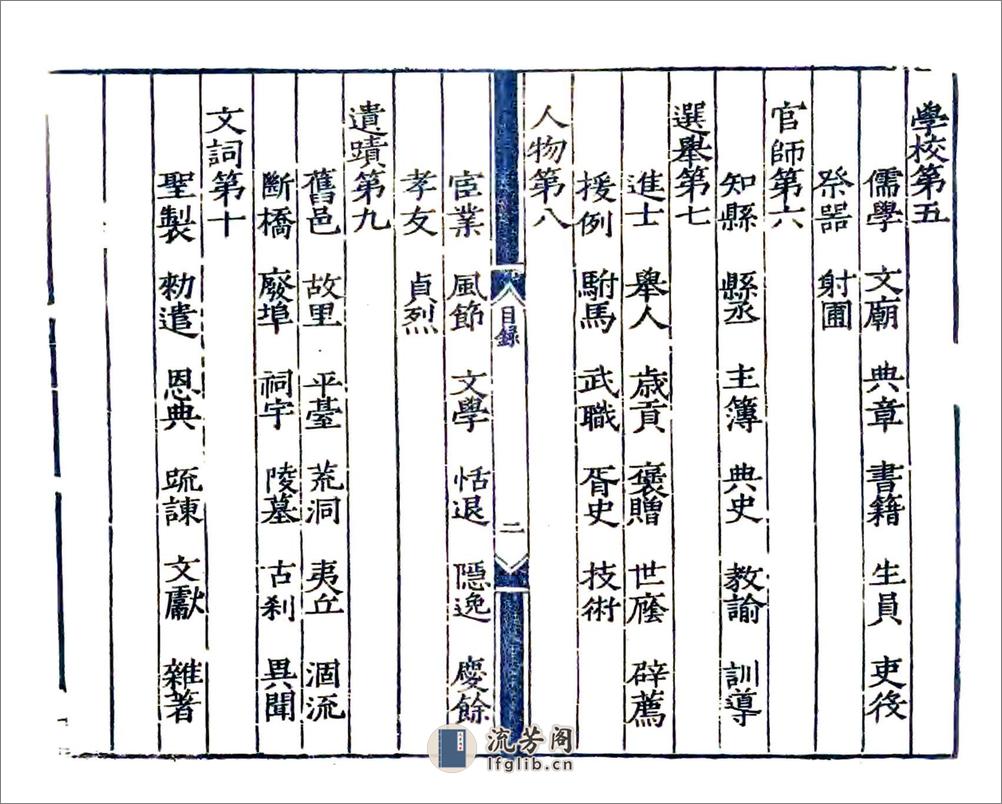 學校第五
儒學 文廟 典章 書籍 生員 吏役
祭噐 射圃
官師第六
知縣 縣丞 主簿 典史 教諭 訓導
選舉第七
進士 舉人 歳貢 褒贈 世廕 辟薦
援例 駙馬 武職 胥史 技術
人物第八
目録
二
宦業 風節 文學 恬退 隱逸 慶餘
孝友 貞烈
遺蹟第九
舊邑 故里 平臺 荒洞 夷丘 涸流
斷橋 廢埠 祠宇 陵墓 古刹 異聞
文詞第十
聖製 勑遣 恩典 䟽諫 文獻 雜著
流芳阁
lfglib.cn